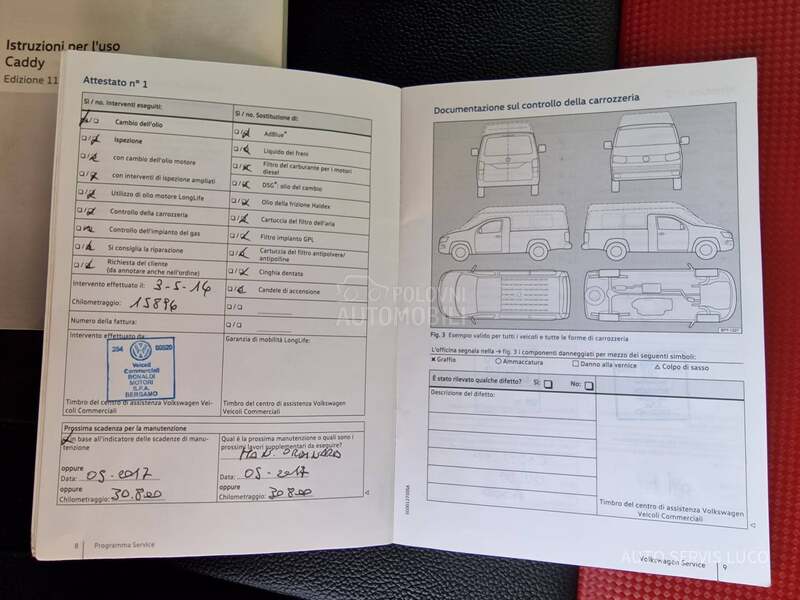 Istruzioni per l'uso
Caddy
Edizione 11
Attestato n° 1
Sì / no. Interventi eseguiti:
Cambio dell'olio
Ispezione
con cambio dell'olio motore
con interventi di ispezione ampliati
Utilizzo di olio motore LongLife
Controllo della carrozzeria
Controllo dell'impianto del gas
Si consiglia la riparazione
Richiesta del cliente
(da annotare anche nell'ordine)
Intervento effettuato il: 3-5-16
Chilometraggio: 15896
Numero della fattura:
Intervento effettuato da
254 60620
Veicoli
Commerciali
BONALDI
MOTORI
S.P.A.
BERGAMO
Timbro del centro di assistenza Volkswagen Vei-
coli Commerciali
Sì / no. Sostituzione di:
AdBlue®
Liquido dei freni
Filtro del carburante per i motori
diesel
DSG®: olio del cambio
Olio della frizione Haldex
Cartuccia del filtro dell'aria
Filtro impianto GPL
Cartuccia del filtro antipolvere/
antipolline
Cinghia dentata
Candele di accensione
Garanzia di mobilità LongLife:
Timbro del centro di assistenza Volkswagen
Veicoli Commerciali
Prossima scadenza per la manutenzione
in base all'indicatore delle scadenze di manu-
tenzione
oppure
Data: 05-2017
oppure
Chilometraggio: 30.800
Qual è la prossima manutenzione o quali sono i
prossimi lavori supplementari da eseguire?
Data: 05-2017
oppure
Chilometraggio: 30.800
8 Programma Service
Documentazione sul controllo della carrozzeria
Fig. 3 Esempio valido per tutti i veicoli e tutte le forme di carrozzeria
L'officina segnala nella → fig. 3 i componenti danneggiati per mezzo dei seguenti simboli:
Graffio Ammaccatura Danno alla vernice Colpo di sasso
È stato rilevato qualche difetto? Sì: No:
Descrizione del difetto:
Timbro del centro di assistenza Volkswagen
Veicoli Commerciali
Volkswagen Service 9
POLOVNI
AUTOMOBILI
AUTO SERVIS LUCO